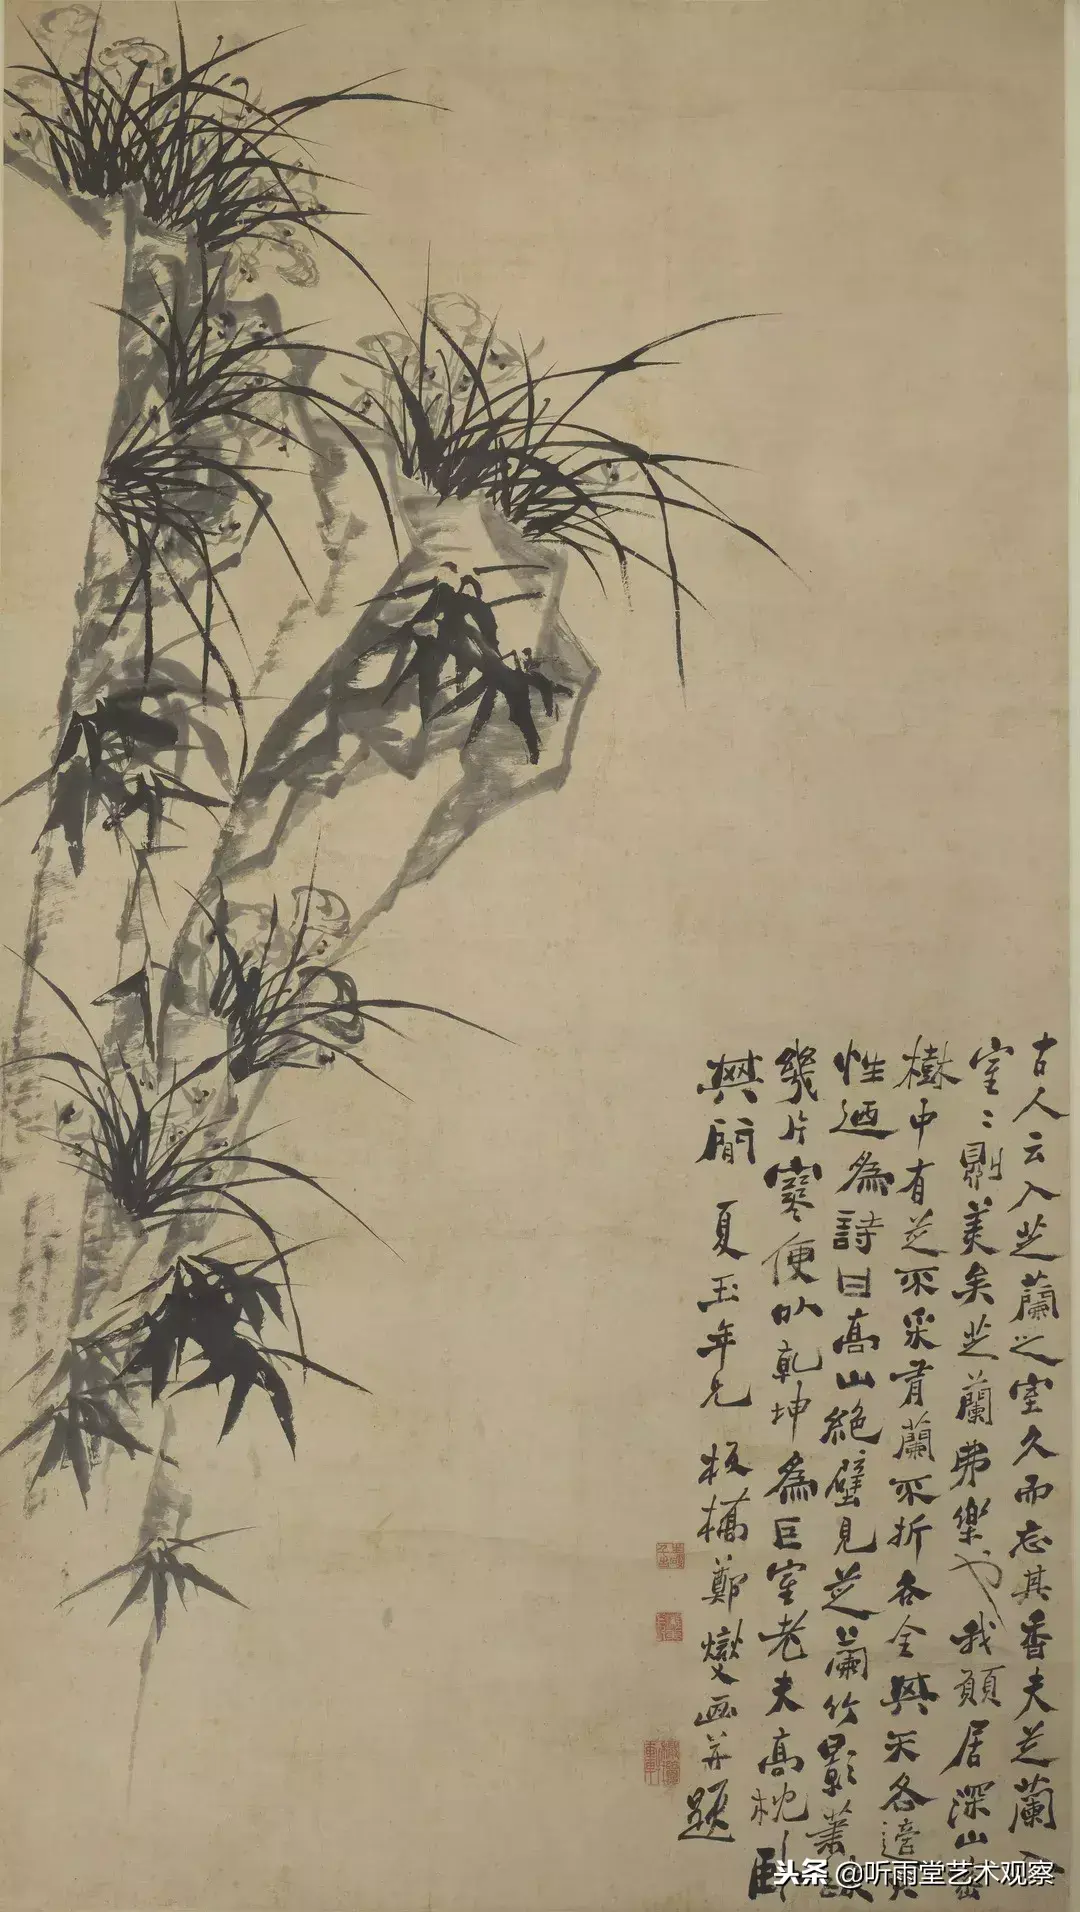 古人云入芝蘭之室久而忘其香夫芝蘭入
室〻則美矣芝蘭弗樂也我願居深山密
樹中有芝不采有蘭不折各全其天各適其
性迺為詩曰高山絕壁見芝蘭竹影蕭疎
幾片寒便以乾坤為巨室老夫高枕臥
其間 夏玉年兄 板橋鄭燮画并題
头条 @听雨堂艺术观察